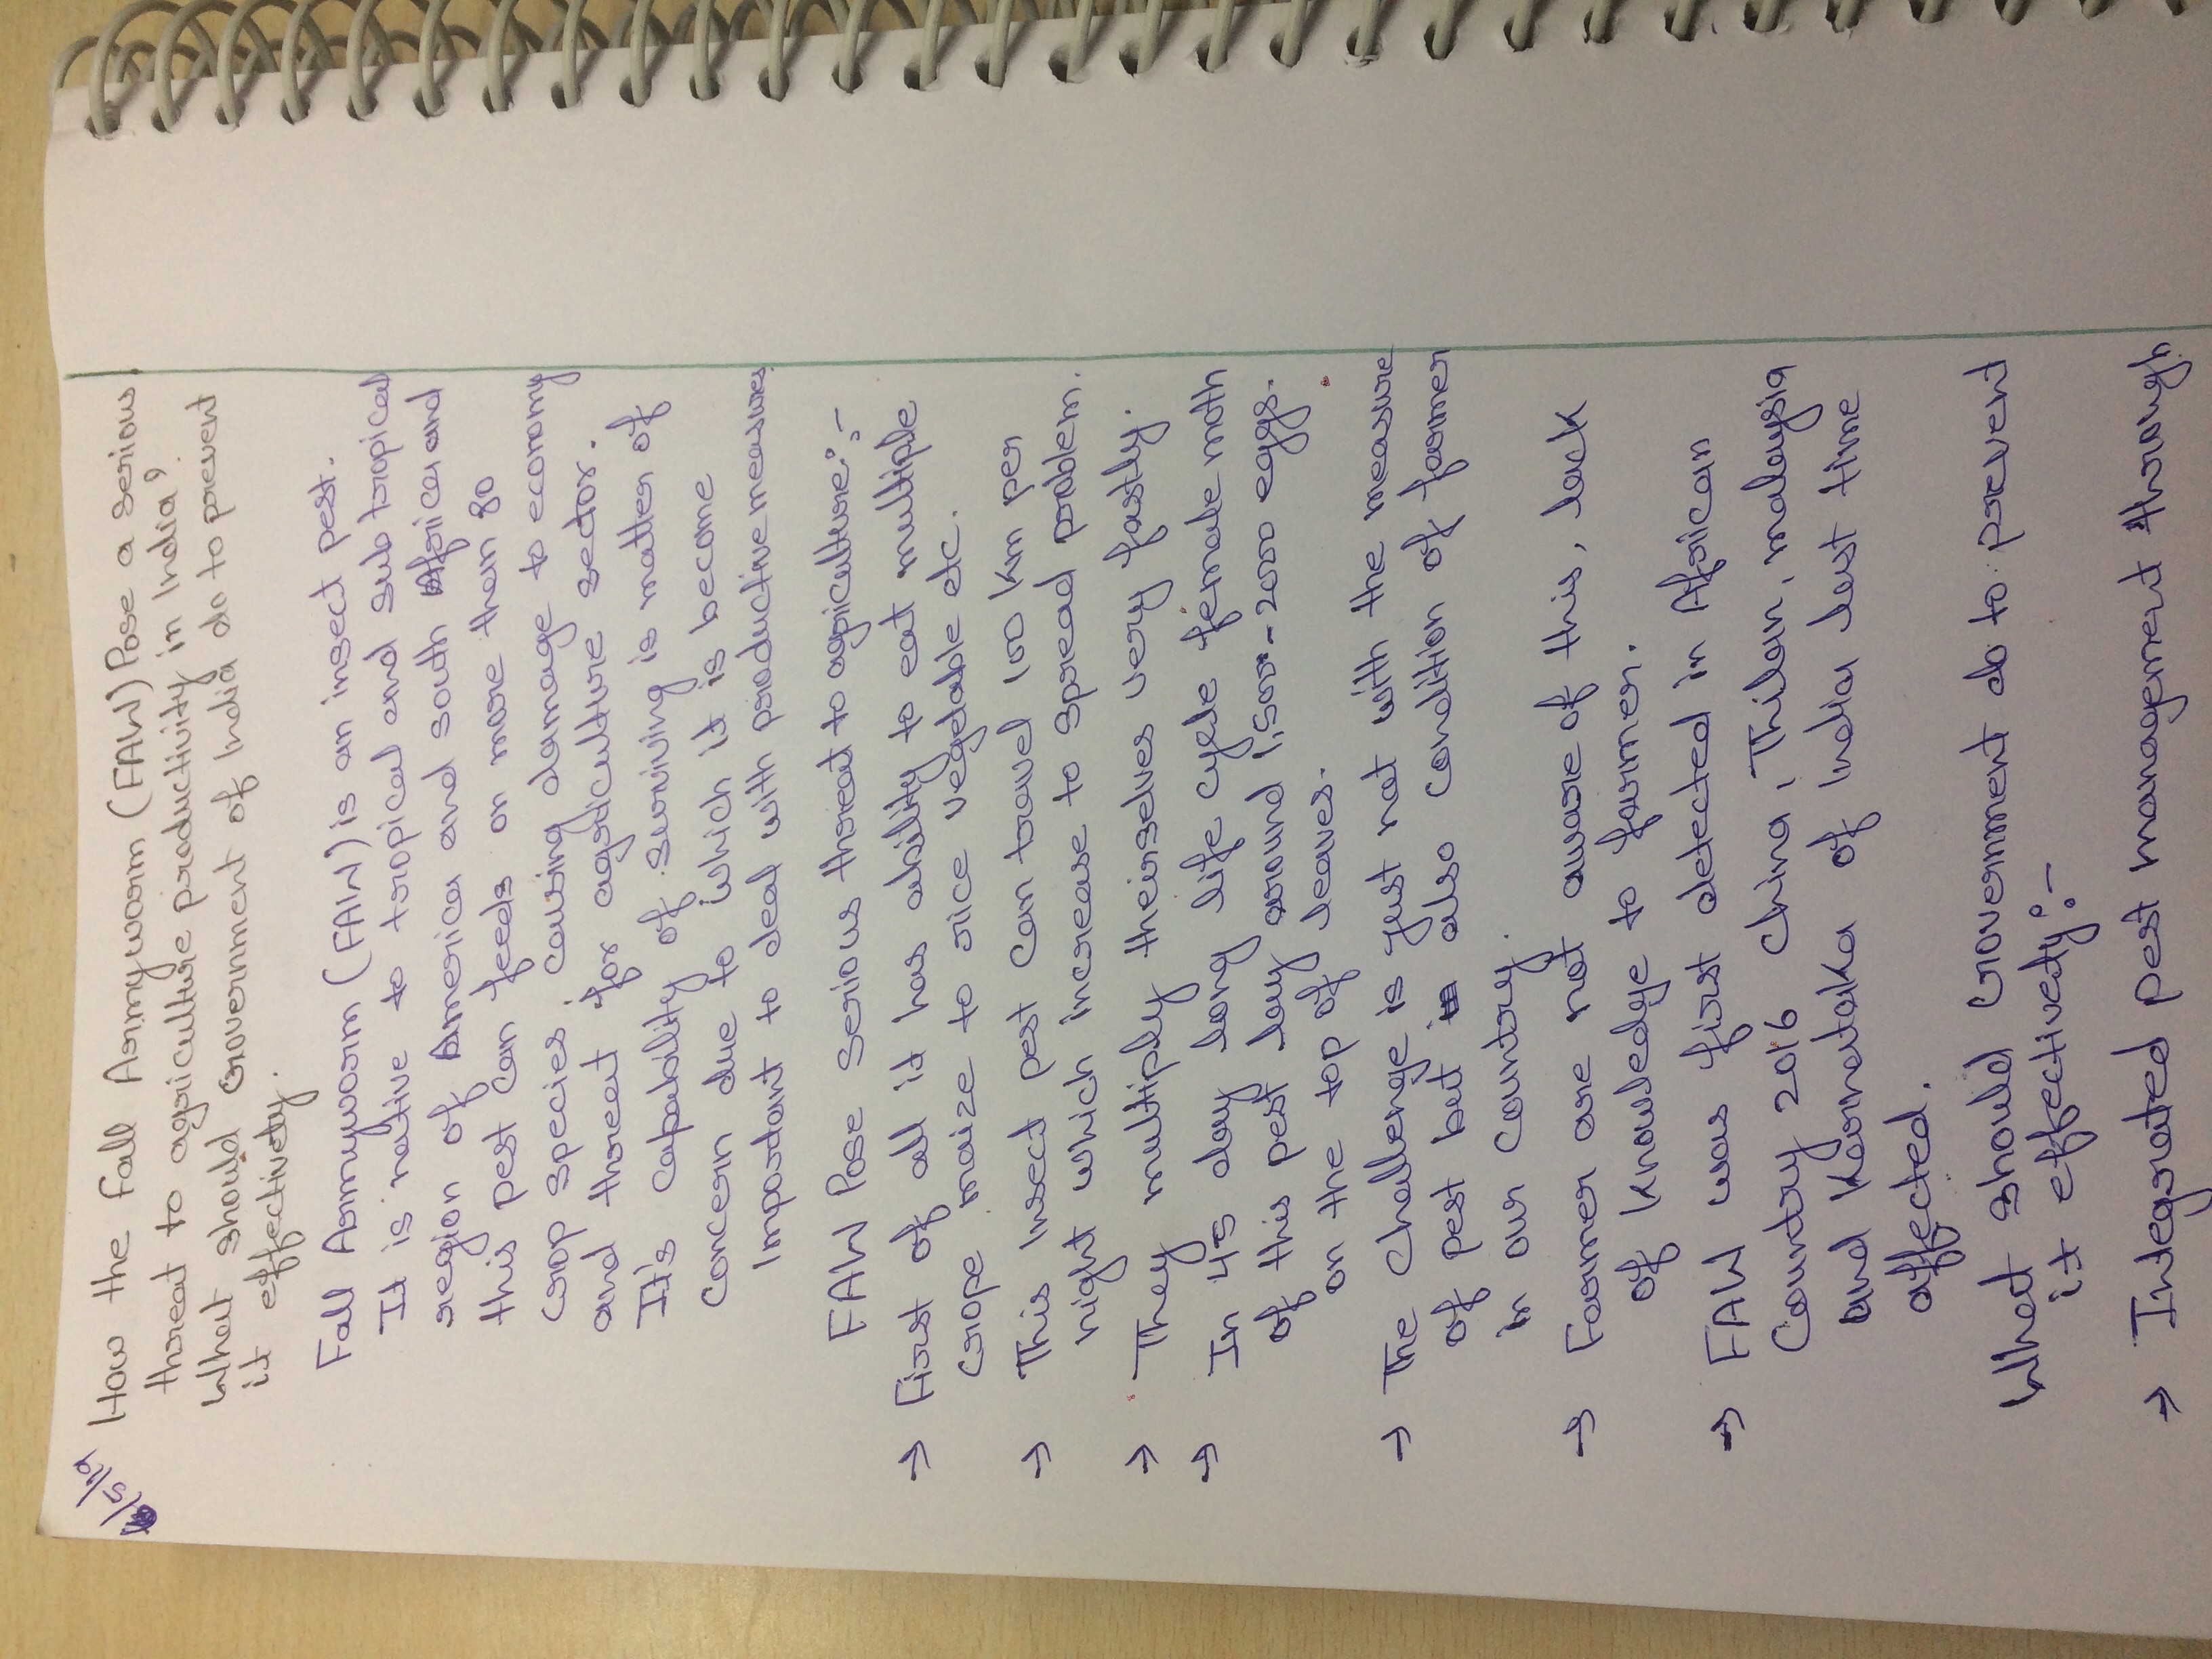 /5/19
How the Fall Armyworm (FAW) Pose a serious
threat to agriculture productivity in India?
What should Government of India do to prevent
it effectively.
Fall Armyworm (FAW) is an insect pest.
It is native to tropical and sub tropical
region of America and south Africa and
this pest can feeds on more than 80
crop species, causing damage to economy
and threat for agriculture sector.
It's capability of surviving is matter of
concern due to which it is become
important to deal with productive measures
FAW Pose serious threat to agriculture:-
→ First of all it has ability to eat multiple
crope maize to rice vegetable etc.
→ This insect pest can travel 100 km per
night which increase to spread problem.
→ They multiply theirselves very fastly.
→ In 45 day long life cycle female moth
of this pest lay around 1,500-2000 eggs.
on the top of leaves.
→ The challenge is just not with the measure
of pest but also condition of farmer
in our country.
→ Farmer are not aware of this, lack
of knowledge to farmer.
→ FAW was first detected in African
Country 2016 China, Thilan, malaysia
and Karnataka of India last time
affected.
What should Government do to prevent
it effectively:-
→ Integrated pest management through